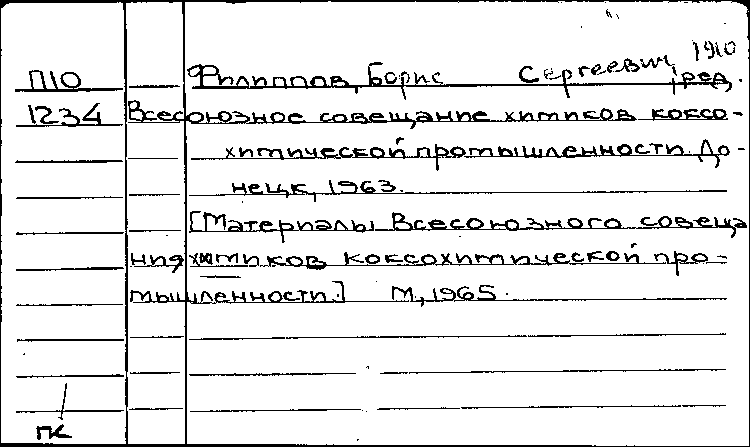 П10 Филиппов, Борис Сергеевич, 1910
ред.
1234 Всесоюзное совещание химиков коксо-
химической промышленности. До-
нецк, 1963.
[Материалы Всесоюзного совеща
ния химиков коксохимической про-
мышленности.] М., 1965.
ПК